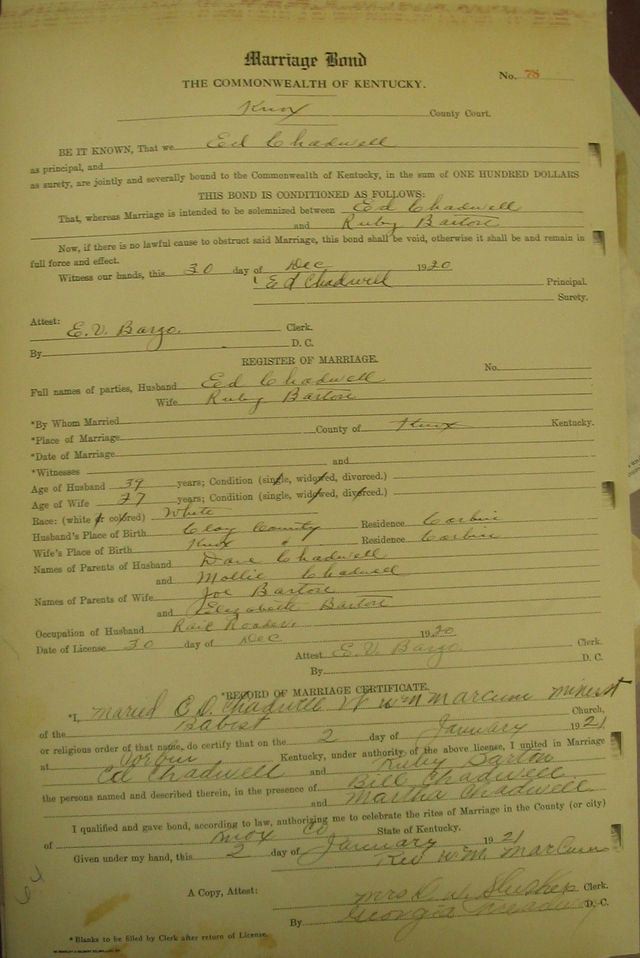 Marriage Bond
THE COMMONWEALTH OF KENTUCKY.
No. 78
Knox County Court.
BE IT KNOWN, That we Ed Chadwell
as principal, and
as surety, are jointly and severally bound to the Commonwealth of Kentucky, in the sum of ONE HUNDRED DOLLARS
THIS BOND IS CONDITIONED AS FOLLOWS:
That, whereas Marriage is intended to be solemnized between Ed Chadwell
and Ruby Barton
Now, if there is no lawful cause to obstruct said Marriage, this bond shall be void, otherwise it shall be and remain in
full force and effect.
Witness our hands, this 30 day of Dec 1920
Ed Chadwell Principal.
Surety.
Attest:
E. V. Bargo Clerk.
By D. C.
REGISTER OF MARRIAGE.
No.
Full names of parties, Husband Ed Chadwell
Wife Ruby Barton
*By Whom Married
*Place of Marriage County of Knox Kentucky.
*Date of Marriage
*Witnesses and
Age of Husband 39 years; Condition (single, widowed, divorced.)
Age of Wife 27 years; Condition (single, widowed, divorced.)
Race: (white or colored) White
Husband's Place of Birth Clay County Residence Corbin
Wife's Place of Birth Knox " Residence Corbin
Names of Parents of Husband Dave Chadwell
and Mollie Chadwell
Names of Parents of Wife Joe Barton
and Elizabeth Barton
Occupation of Husband Rail Roader
Date of License 30 day of Dec 1920
Attest E. V. Bargo Clerk.
By D. C.
*RECORD OF MARRIAGE CERTIFICATE.
*I, maried C.D. Chadwell Wm Marcum
of the Babist Church,
or religious order of that name, do certify that on the 2 day of January 1921
at Corbin Kentucky, under authority of the above license, I united in Marriage
Ed Chadwell and Ruby Barton
the persons named and described therein, in the presence of Bill Chadwell
and Martha Chadwell
I qualified and gave bond, according to law, authorizing me to celebrate the rites of Marriage in the County (or city)
of Knox Co State of Kentucky.
Given under my hand, this 2 day of January 1921
Rev Wm. Marcum
A Copy, Attest: Mrs D. M. Slusher Clerk.
By Georgia D. C.
*Blanks to be filled by Clerk after return of License.
64